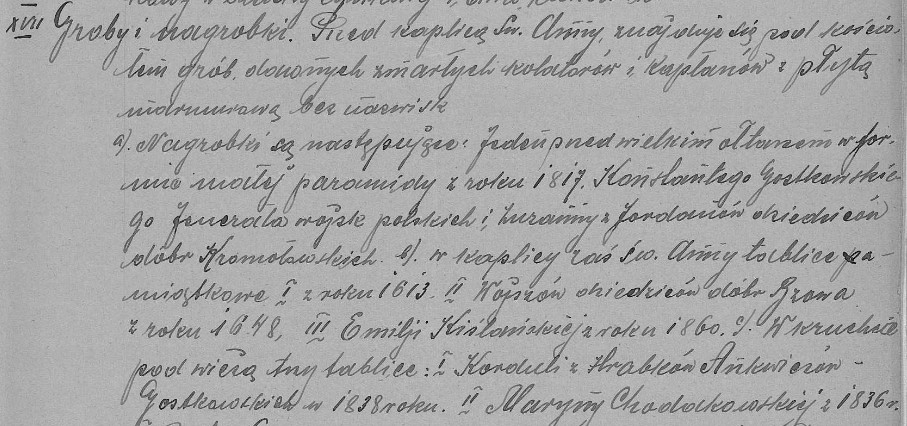 XVII Groby i nagrobki. Przed kaplicą św. Anny, znajduje się pod kościo-
łem grób, dawnych zmarłych kolatorów i kapłanów z płytą
marmurową bez nazwisk
a). Nagrobki są następujące: Jeden przed wielkim ołtarzem w for-
mie małej paramidy z roku 1817. Konstantego Gostkowskie-
go Jenerała wojsk polskich i, Zuzanny z Jordanów dziedziców
dóbr Kromołowskich. b). w kaplicy zaś św. Anny tablice pa-
miątkowe I z roku 1613. II Wojszów dziedziców dóbr Rzowa
z roku 1648, III Emilji Kiślańskiej z roku 1860. c). W kruchcie
pod wieżą trzy tablice: I Korduli z Hrabków Ankwiczów-
Gostkowskich w 1838 roku. II Maryny Chodakowskiej z 1836 r.